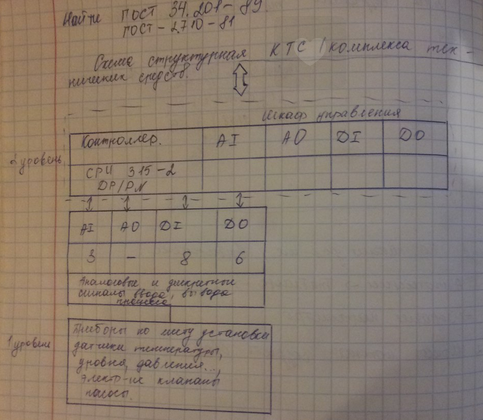 Найти ГОСТ 34.201-89.
ГОСТ-2.710-81
Схема структурная КТС (комплекса тех-
нических средств.
Шкаф управления
2 уровень
Контроллер. AI AO DI DO
CPU 315-2
DP/PN
AI AO DI DO
3 - 8 6
Аналоговые и дискретные
сигналы ввода, вывода
процесса
1 уровень
Приборы по месту установки
датчики температуры,
уровня, давления...,
электр-ие клапаны
насосы.